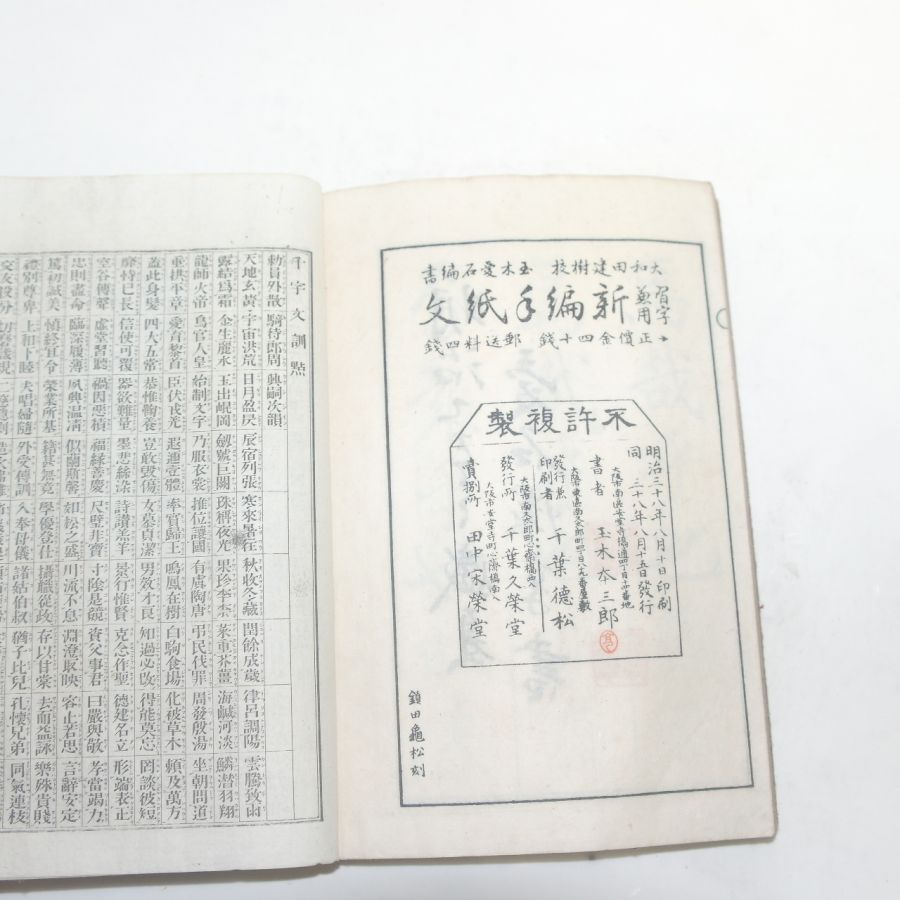 大和田建樹校 玉木愛石編書
習字兼用 新編手紙文
正價金四十錢 郵送料四錢
不許複製
明治三十八年八月十日印刷
同 三十八年八月十五日發行
大阪市南區安堂寺橋通四丁目
書者 玉木本三郎
大阪市東區南久太郎町四丁目 番屋敷
發行兼印刷者 千葉德松
大阪市南久太郎町心齋橋西入
發行所 千葉久榮堂
大阪市安堂寺町心齋橋南入
賣捌所 田中宋榮堂
鎖田龜松刻
千字文訓點
勅員外散 騎侍郎周 興嗣次韻
天地玄黃 宇宙洪荒 日月盈昃 辰宿列張 寒來暑往 秋收冬藏 閏餘成歲 律呂調陽 雲騰致雨
露結爲霜 金生麗水 玉出崐岡 劒號巨闕 珠稱夜光 果珍李柰 菜重芥薑 海鹹河淡 鱗潛羽翔
龍師火帝 鳥官人皇 始制文字 乃服衣裳 推位讓國 有虞陶唐 弔民伐罪 周發殷湯 坐朝問道
垂拱平章 愛育黎首 臣伏戎羌 遐邇壹體 率賓歸王 鳴鳳在樹 白駒食場 化被草木 賴及萬方
蓋此身髮 四大五常 恭惟鞠養 豈敢毀傷 女慕貞潔 男效才良 知過必改 得能莫忘 罔談彼短
靡恃己長 信使可覆 器欲難量 墨悲絲染 詩讚羔羊 景行惟賢 克念作聖 德建名立 形端表正
空谷傳聲 虛堂習聽 禍因惡積 福緣善慶 尺璧非寶 寸陰是競 資父事君 曰嚴與敬 孝當竭力
忠則盡命 臨深履薄 夙興溫凊 似蘭斯馨 如松之盛 川流不息 淵澄取映 容止若思 言辭安定
篤初誠美 慎終宜令 榮業所基 籍甚無竟 學優登仕 攝職從政 存以甘棠 去而益詠 樂殊貴賤
禮別尊卑 上和下睦 夫唱婦隨 外受傅訓 入奉母儀 諸姑伯叔 猶子比兒 孔懷兄弟 同氣連枝